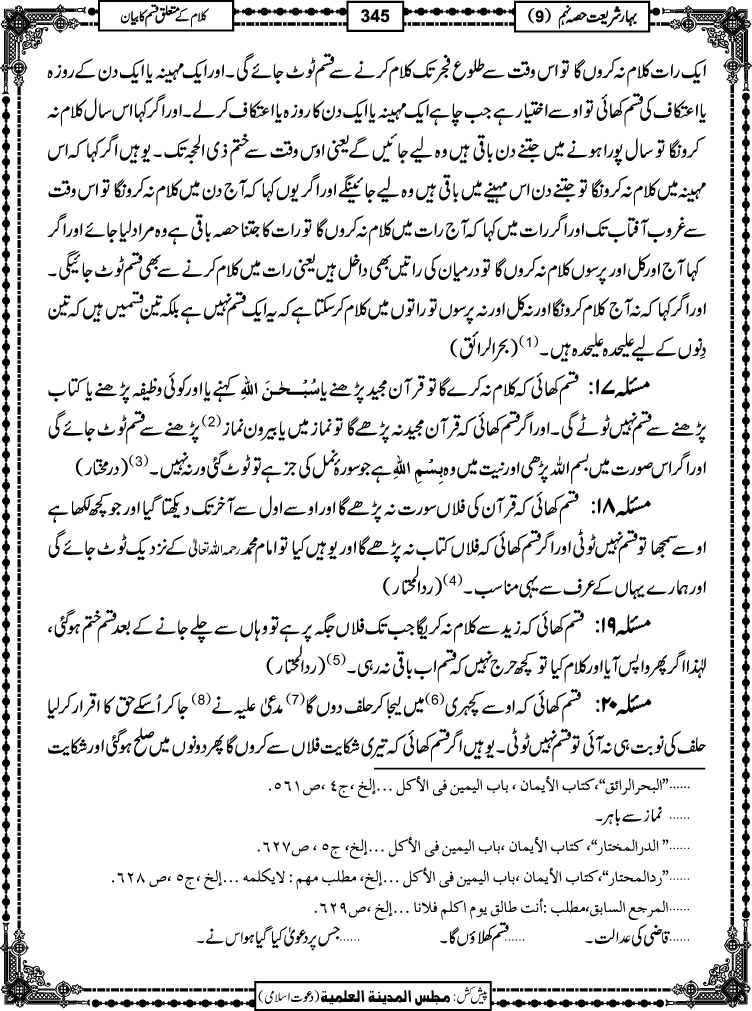 بہارِ شریعت حصہ نہم (9)
345
کلام کے متعلق قسم کا بیان
ایک رات کلام نہ کروں گا تو اس وقت سے طلوع فجر تک کلام کرنے سے قسم ٹوٹ جائے گی۔ اور ایک مہینہ یا ایک دن کے روزہ
یا اعتکاف کی قسم کھائی تو اوسے اختیار ہے جب چاہے ایک مہینہ یا ایک دن کا روزہ یا اعتکاف کرلے۔ اور اگر کہا اس سال کلام نہ
کرونگا تو سال پورا ہونے میں جتنے دن باقی ہیں وہ لیے جائیں گے یعنی اوس وقت سے ختم ذی الحجہ تک۔ یوہیں اگر کہا کہ اس
مہینہ میں کلام نہ کرونگا تو جتنے دن اس مہینے میں باقی ہیں وہ لیے جائینگے اور اگر یوں کہا کہ آج دن میں کلام نہ کرونگا تو اس وقت
سے غروب آفتاب تک اور اگر رات میں کہا کہ آج رات میں کلام نہ کروں گا تو رات کا جتنا حصہ باقی ہے وہ مراد لیا جائے اور اگر
کہا آج اور کل اور پرسوں کلام نہ کروں گا تو درمیان کی راتیں بھی داخل ہیں یعنی رات میں کلام کرنے سے بھی قسم ٹوٹ جائیگی۔
اور اگر کہا کہ نہ آج کلام کرونگا اور نہ کل اور نہ پرسوں تو راتوں میں کلام کرسکتا ہے کہ یہ ایک قسم نہیں ہے بلکہ تین قسمیں ہیں کہ تین
دِنوں کے لیے علیحدہ علیحدہ ہیں۔(1) (بحرالرائق)
مسئلہ ۱۷: قسم کھائی کہ کلام نہ کرے گا تو قرآن مجید پڑھنے یا سُبْحٰنَ اللهِ کہنے یا اور کوئی وظیفہ پڑھنے یا کتاب
پڑھنے سے قسم نہیں ٹوٹے گی۔ اور اگر قسم کھائی کہ قرآن مجید نہ پڑھے گا تو نماز میں یا بیرون نماز(2) پڑھنے سے قسم ٹوٹ جائے گی
اور اگر اس صورت میں بسم اللہ پڑھی اور نیت میں وہ بِسْمِ اللهِ ہے جو سورۂ نمل کی جز ہے تو ٹوٹ گئی ورنہ نہیں۔(3) (درمختار)
مسئلہ ۱۸: قسم کھائی کہ قرآن کی فلاں سورت نہ پڑھے گا اور اوسے اول سے آخر تک دیکھتا گیا اور جو کچھ لکھا ہے
اوسے سمجھا تو قسم نہیں ٹوٹی اور اگر قسم کھائی کہ فلاں کتاب نہ پڑھے گا اور یوہیں کیا تو امام محمد رحمہ اللہ تعالٰی کے نزدیک ٹوٹ جائے گی
اور ہمارے یہاں کے عرف سے یہی مناسب۔(4) (ردالمحتار)
مسئلہ ۱۹: قسم کھائی کہ زید سے کلام نہ کریگا جب تک فلاں جگہ پر ہے تو وہاں سے چلے جانے کے بعد قسم ختم ہوگئی،
لہٰذا اگر پھر واپس آیا اور کلام کیا تو کچھ حرج نہیں کہ قسم اب باقی نہ رہی۔(5) (ردالمحتار)
مسئلہ ۲۰: قسم کھائی کہ اوسے کچہری(6) میں لیجا کر حلف دوں گا(7) مدعیٰ علیہ نے(8) جا کر اُسکے حق کا اقرار کرلیا
حلف کی نوبت ہی نہ آئی تو قسم نہیں ٹوٹی۔ یوہیں اگر قسم کھائی کہ تیری شکایت فلاں سے کروں گا پھر دونوں میں صلح ہوگئی اور شکایت
......”البحرالرائق“،کتاب الأیمان ، باب الیمین فی الأکل ...إلخ ،ج٤ ،ص٥٦١.
...... نماز سے باہر۔
......” الدرالمختار“، کتاب الأیمان ،باب الیمین فی الأکل ...إلخ، ج٥ ، ص٦٢٧.
......”ردالمحتار“،کتاب الأیمان ،باب الیمین فی الأکل ...إلخ، مطلب مهم : لایکلمه ...إلخ ،ج٥ ،ص ٦٢٨.
......المرجع السابق،مطلب :أنت طالق یوم اکلم فلانا ...إلخ ،ص٦٢٩.
......قاضی کی عدالت۔ ......قسم کھلاؤں گا۔ ......جس پر دعویٰ کیا گیا ہو اس نے۔
پیش کش: مجلس المدينة العلمية (دعوت اسلامی)